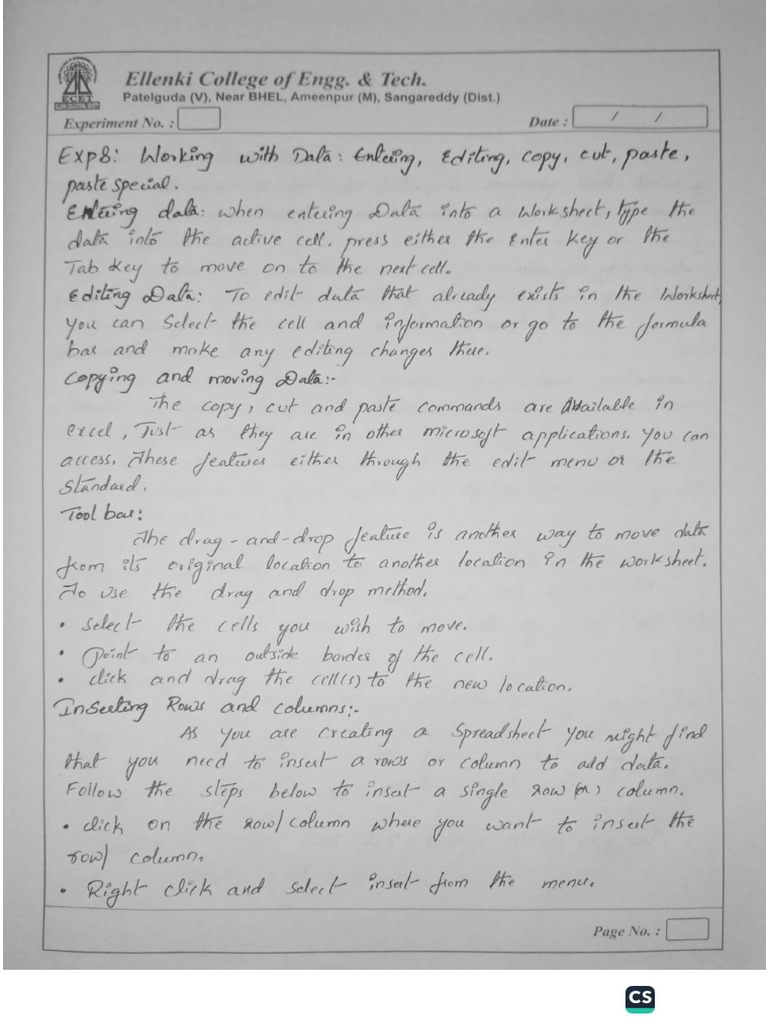 Ellenki College of Engg. & Tech.
Patelguda (V), Near BHEL, Ameenpur (M), Sangareddy (Dist.)
ECET
Experiment No. :
Date : / /
Exp8: Working with Data: Entering, Editing, copy, cut, paste,
paste special.
Entering data: when entering Data into a Worksheet, type the
data into the active cell. press either the Enter key or the
Tab key to move on to the next cell.
Editing Data: To edit data that already exists in the Worksheet,
you can select the cell and information or go to the formula
bar and make any editing changes there.
Copying and moving Data:-
The copy, cut and paste commands are Available in
excel, Just as they are in other microsoft applications. you can
access. These features either through the edit menu or the
Standard.
Tool bar:
The drag-and-drop feature is another way to move data
from its original location to another location in the worksheet.
To use the drag and drop method.
• select the cells you wish to move.
• Point to an outside border of the cell.
• click and drag the cell(s) to the new location.
Inserting Rows and columns:-
As you are creating a spreadsheet you might find
that you need to insert a rows or column to add data.
Follow the steps below to insert a single row (or) column.
• click on the row/column where you want to insert the
row/ column.
• Right click and select insert from the menu.
Page No. :
CS